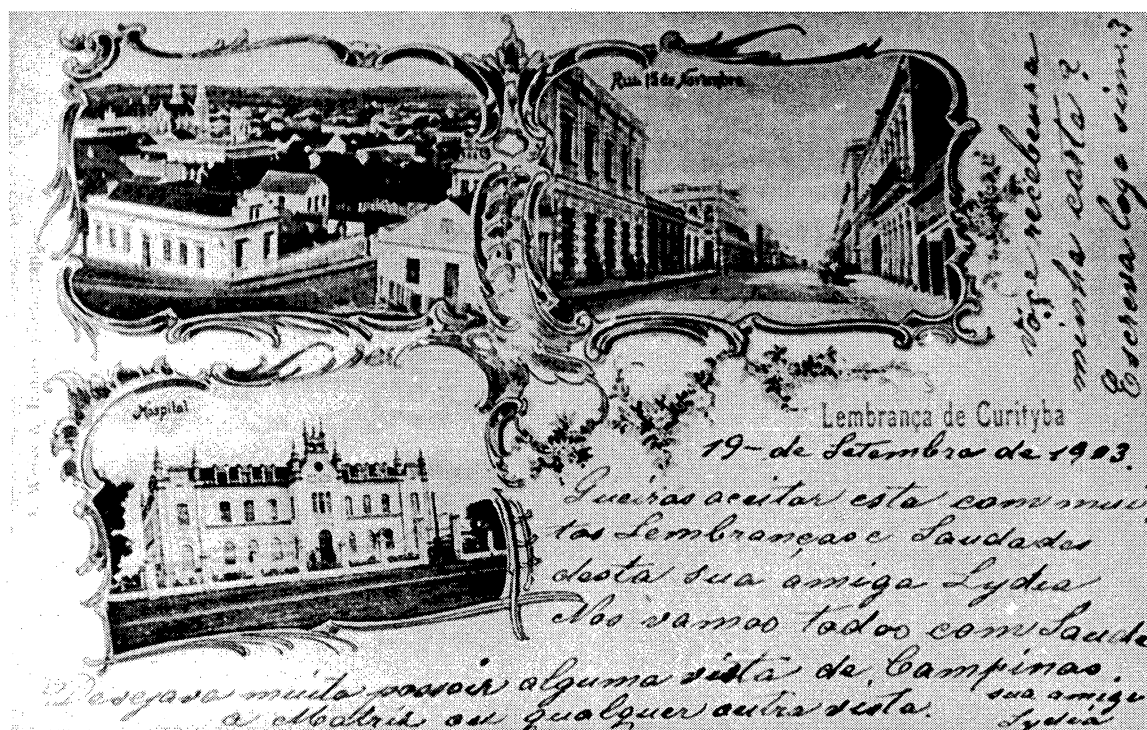 Rua 15 de Novembro
Hospital
Lembrança de Curityba
19- de Setembro de 1903.
Queiras aceitar esta com mui
tas Lembranças e Saudades
desta sua amiga Lydia
Nos vamos todos com Saude
Desejava muito possoir alguma vista de Campinas.
a Matriz ou qualquer outra vista.
sua amiga
Lydia
Voçe recebeu a
minha carta?
Escreva logo sim?